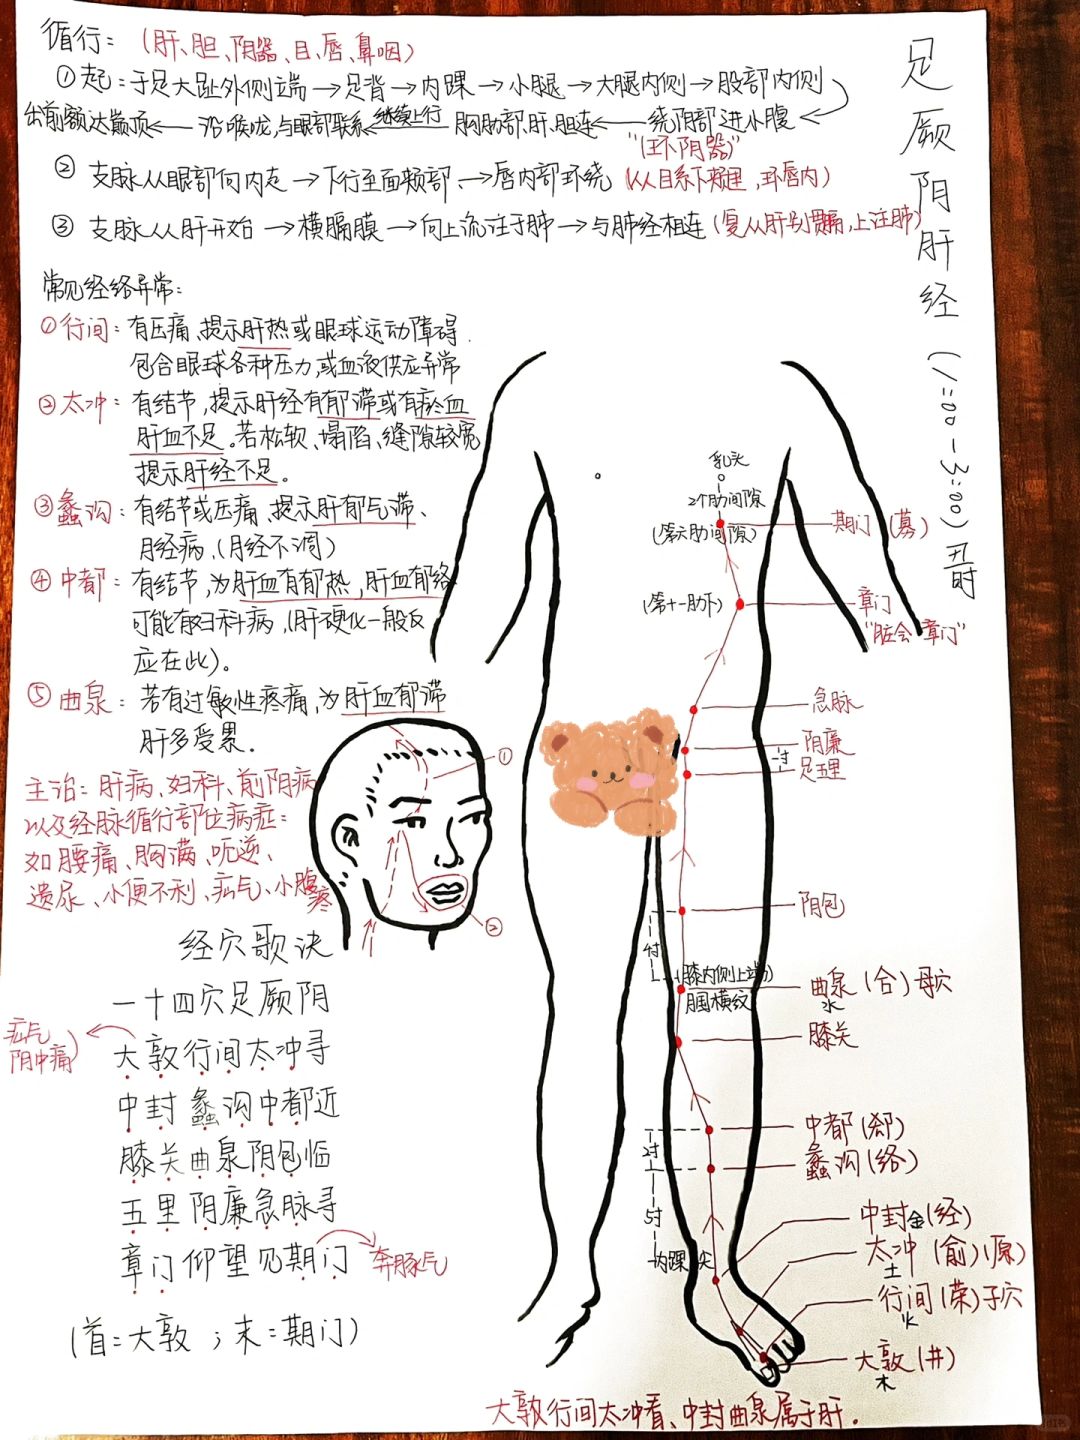 足厥阴肝经(1:00-3:00)丑时
循行:(肝、胆、阴器、目、唇、鼻咽)
①起:于足大趾外侧端→足背→内踝→小腿→大腿内侧→股部内侧
出前额达巅顶←沿喉咙,与眼部联系←继续上行 胸肋部、肝、胆连←绕阴部进小腹
"(环阴器)"
②支脉从眼部向内走→下行至面颊部、→唇内部环绕(从目系下颊里,环唇内)
③支脉从肝开始→横膈膜→向上流注于肺→与肺经相连(复从肝别贯膈,上注肺)
常见经络异常:
①行间:有压痛、提示肝热或眼球运动障碍.
包含眼球各种压力,或血液供应异常
②太冲:有结节,提示肝经有郁滞或有瘀血
肝血不足。若松软、塌陷、缝隙较宽
提示肝经不足。
③蠡沟:有结节或压痛、提示肝郁气滞、
月经病,(月经不调)
④中都:有结节,为肝血有郁热,肝血有郁络
可能有妇科病,(肝硬化一般反
应在此)。
⑤曲泉:若有过敏性疼痛,为肝血郁滞
肝多受累.
主治:肝病、妇科、前阴病
以及经脉循行部位病症:
如腰痛、胸满、呃逆、
遗尿、小便不利、疝气、小腹
疼
①
②
经穴歌诀
一十四穴足厥阴
疝气
阴中痛
大敦行间太冲寻
中封蠡沟中都近
膝关曲泉阴包临
五里阴廉急脉寻
章门仰望见期门
奔豚气
(首=大敦;末=期门)
乳头
2个肋间隙
(第六肋间隙)
期门(募)
(第十一肋下)
章门
"脏会章门"
急脉
阴廉
一寸
足五里
阴包
4寸
(膝内侧上端)
腘横纹
曲泉(合)母穴
水
膝关
中都(郄)
2寸
蠡沟(络)
5寸
内踝尖
中封金(经)
太冲(俞)(原)
土
行间(荣)子穴
火
大敦(井)
木
大敦行间太冲看、中封曲泉属于肝.